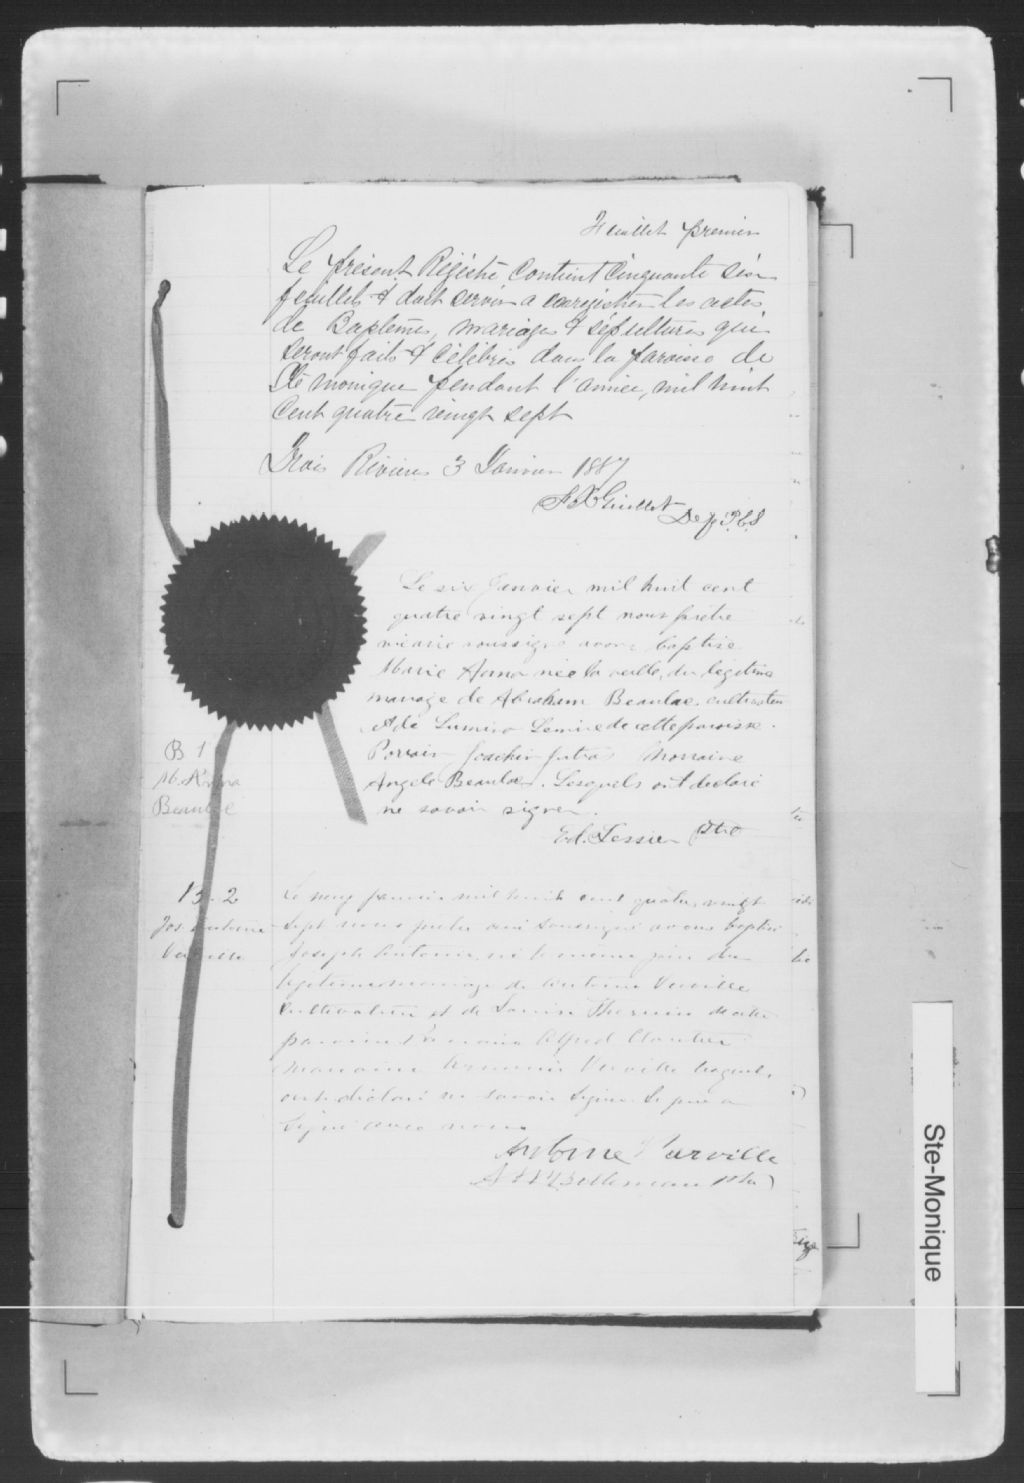 Feuillet premier
Le présent Régistre Contient Cinquante six
feuillets & doit servir a enregistrer les actes
de Baptêmes, mariages & sépultures qui
seront faits & célébrés dans la paroisse de
Ste Monique pendant l'année, mil huit
Cent quatre vingt sept
Trois Rivières 3 Janvier 1887
Guillet Dep P.C.S
Le six Janvier mil huit cent
quatre vingt sept nous prêtre
vicaire soussigné avons baptisé
Marie Anna née la veille, du légitime
mariage de Abraham Beaulac cultivateur
& de Lumina Lemire de cette paroisse.
Parrain Joachin Jutras Marraine
Angele Beaulac. Lesquels ont déclaré
ne savoir signer.
Ed. Tessier Ptre
B 1
M. Anna
Beaulac
B. 2
Jos. Antoine
Verville
Le neuf janvier mil huit cent quatre vingt
sept nous prêtre curé soussigné avons baptisé
Joseph Antoine né le même jour du
légitime mariage de Antoine Verville
Cultivateur et de Louise Therrien de cette
paroisse Parrain Alfred Cloutier
Marraine Verville lesquels
ont déclaré ne savoir signer le père a
signé avec nous
Antoine Varville
Ptre
Ste-Monique